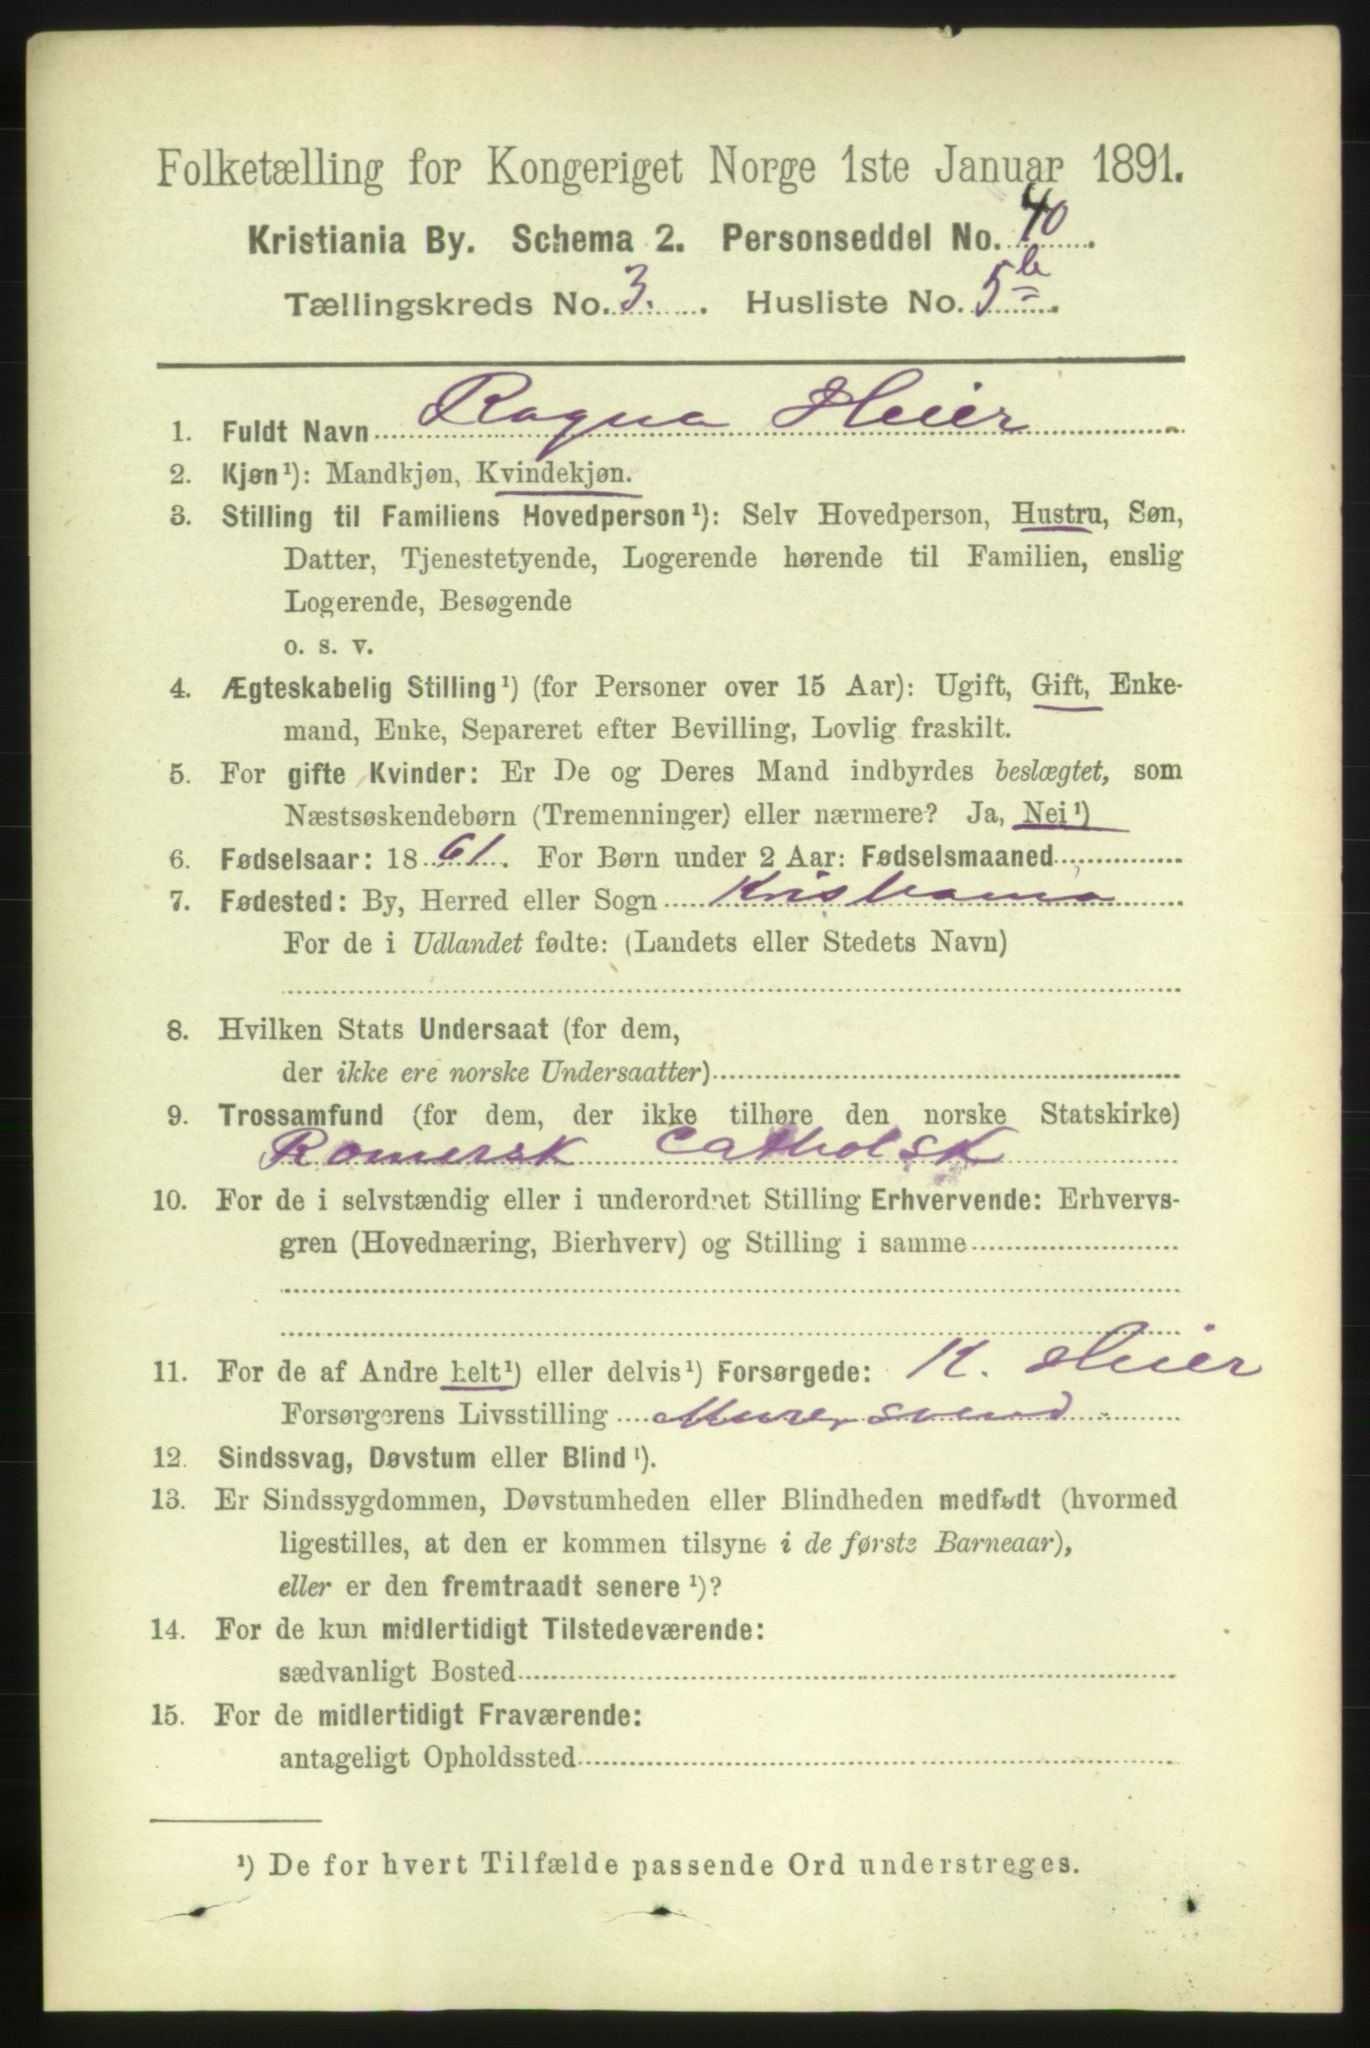 Folketælling for Kongeriget Norge 1ste Januar 1891.
Kristiania By. Schema 2. Personseddel No. 40.
Tællingskreds No. 3. Husliste No. 5b.
1. Fuldt Navn Ragna Heier
2. Kjøn¹): Mandkjøn, Kvindekjøn.
3. Stilling til Familiens Hovedperson¹): Selv Hovedperson, Hustru, Søn,
Datter, Tjenestetyende, Logerende hørende til Familien, enslig
Logerende, Besøgende
o. s. v.
4. Ægteskabelig Stilling¹) (for Personer over 15 Aar): Ugift, Gift, Enke-
mand, Enke, Separeret efter Bevilling, Lovlig fraskilt.
5. For gifte Kvinder: Er De og Deres Mand indbyrdes beslægtet, som
Næstsøskendebørn (Tremenninger) eller nærmere? Ja, Nei¹)
6. Fødselsaar: 1861. For Børn under 2 Aar: Fødselsmaaned
7. Fødested: By, Herred eller Sogn Kristiania
For de i Udlandet fødte: (Landets eller Stedets Navn)
8. Hvilken Stats Undersaat (for dem,
der ikke ere norske Undersaatter)
9. Trossamfund (for dem, der ikke tilhøre den norske Statskirke)
Romersk Catholsk
10. For de i selvstændig eller i underordnet Stilling Erhvervende: Erhvervs-
gren (Hovednæring, Bierhverv) og Stilling i samme
11. For de af Andre helt¹) eller delvis¹) Forsørgede: K. Heier
Forsørgerens Livsstilling Murersvend
12. Sindssvag, Døvstum eller Blind¹).
13. Er Sindssygdommen, Døvstumheden eller Blindheden medfødt (hvormed
ligestilles, at den er kommen tilsyne i de første Barneaar),
eller er den fremtraadt senere¹)?
14. For de kun midlertidigt Tilstedeværende:
sædvanligt Bosted
15. For de midlertidigt Fraværende:
antageligt Opholdssted
¹) De for hvert Tilfælde passende Ord understreges.